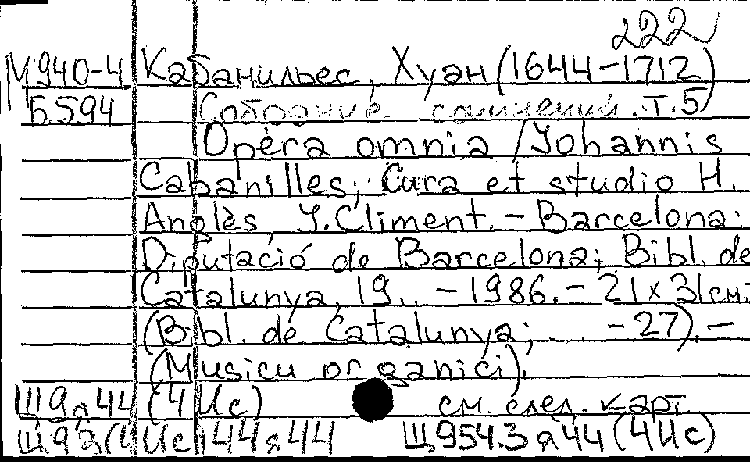 222
М940-4 Кабанильес, Хуан (1644-1712)
Б594 Собрание сочинений. Т.5
Opera omnia / Johannis
Cabanilles; Cura et studio H.
Anglès, J. Climent. - Barcelona:
Diputació de Barcelona; Bibl. de
Catalunya, 19.. - 1986. - 21 x 31 см.
(Bibl. de Catalunya; .. - 27). -
(Musicu organici).
Щ9я44(4Ис) см. след. карт.
Щ92(4Ис)44я44 Щ954.3я44(4Ис)